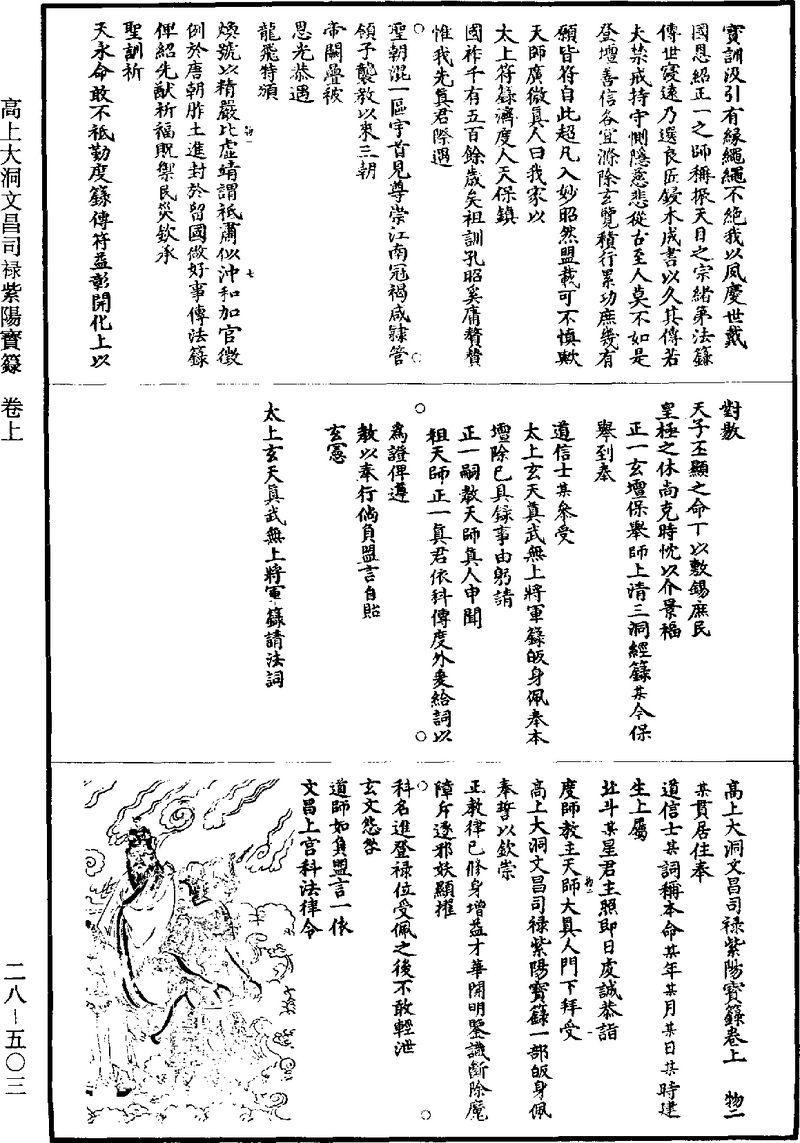 寶訓汲引有緣繩繩不絕我以風慶世戴
國恩紹正一之師稱振天目之宗緒第法籙
傳世寖遠乃選良匠鋟木成書以久其傳若
夫禁戒持守惻隱慈悲從古至人莫不如是
登壇善信各宜滌除玄覽積行累功庶幾有
願皆符自此超凡入妙昭然盟載可不慎歟
天師廣微真人曰我家以
太上符籙濟度人天保鎮
國祚千有五百餘歲矣祖訓孔昭奚庸贅贅
惟我先真君際遇
聖朝混一區宇首見尊崇江南冠褐咸隸管
領予襲教以來三朝
帝闕疊被
思光恭遇
龍飛特頒
煥號以精嚴比虛靖謂祗肅似沖和加官徵
例於唐朝胙土進封於留國俶好事傳法籙
俾紹先猷祈福貺禦民災欽承
聖訓祈
天永命敢不祗勤度籙傳符益彰開化上以
對敭
天子丕顯之命丅以敷錫庶民
皇極之休尚克時忱以介景福
正一玄壇保舉師上清三洞經籙某今保
舉到奉
道信士某叅受
太上玄天真武無上將軍籙皈身佩奉本
壇除已具錄事由躬請
正一嗣教天師真人申聞
祖天師正一真君依科傳度外爰給詞以
為證俾遵
教以奉行倘負盟言自貽
玄憲
太上玄天真武無上將軍籙請法詞
高上大洞文昌司祿紫陽寶籙卷上 物二
某貫居住奉
道信士某詞稱本命某年某月某日某時建
生上屬
北斗某星君主照即日虔誠恭詣
度師教主天師大真人門下拜受
高上大洞文昌司祿紫陽寶籙一部皈身佩
奉誓以欽崇
正教律已修身增益才華開明鑒識斷除魔
障斥逐邪妖顯擢
科名進登祿位受佩之後不敢輕泄
玄文怨咎
道師如負盟言一依
文昌上宮科法律令
高上大洞文昌司祿紫陽寶籙 卷上
二八–五〇三